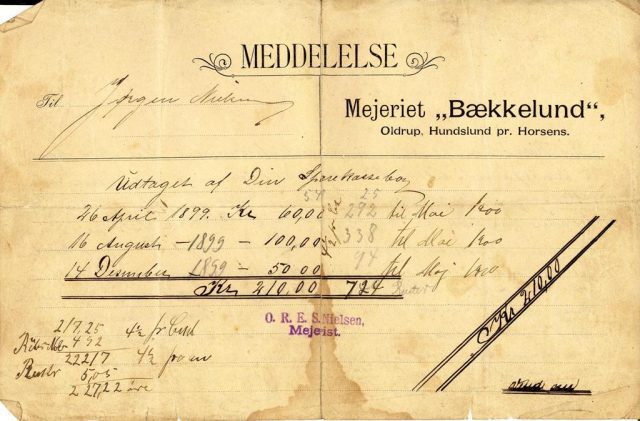 MEDDELELSE
Til Jørgen Nielsen
Mejeriet „Bækkelund“,
Oldrup, Hundslund pr. Horsens.
Udtaget af Din Sparekassebog
54 25
26 April 1899. Kr 60,00 292 til Mai 1900
16 Augusti - 1899 - 100,00 338 til Mai 1900
14 Desember 1899 - 50,00 94 til Maj 1900
Kr 210,00 724
Kr 210,00
O. R. E. S. Nielsen,
Mejerist.
217,25 4½
4 92
222,17 4½
5,05
227,22 øre